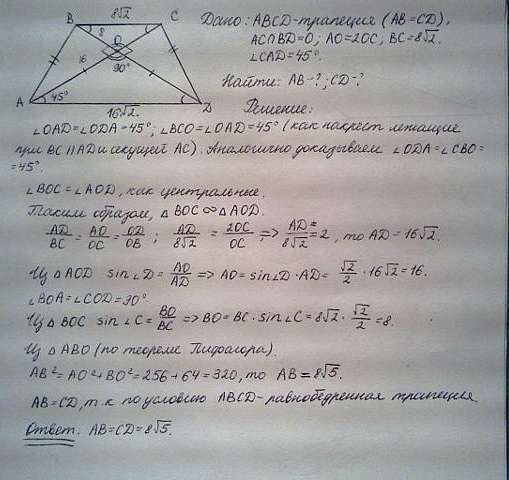 B 8√2 C
8 O
16 90°
A 45° D
16√2.
Дано: ABCD-трапеция (AB=CD),
AC∩BD=O; AO=2OC; BC=8√2.
∠CAD=45°.
Найти: AB-?; CD-?
Решение:
∠OAD=∠ODA=45°; ∠BCO=∠OAD=45° (как накрест лежащие
при BC ∥ AD и секущей AC). Аналогично доказываем ∠ODA=∠CBO=
=45°.
∠BOC=∠AOD, как центральные.
Таким образом, △BOC ∞ △AOD.
AD/BC = AO/OC = OD/OB; AD/8√2 = 2OC/OC; => AD/8√2 = 2, то AD=16√2.
Из △AOD sin∠D = AO/AD => AO=sin∠D·AD= √2/2 · 16√2=16.
∠BOA=∠COD=90°.
Из △BOC sin∠C = BO/BC => BO=BC·sin∠C=8√2 · √2/2 =8.
Из △ABO (по теореме Пифагора).
AB²=AO²+BO²=256+64=320, то AB=8√5.
AB=CD, т.к по условию ABCD-равнобедренная трапеция
Ответ: AB=CD=8√5.